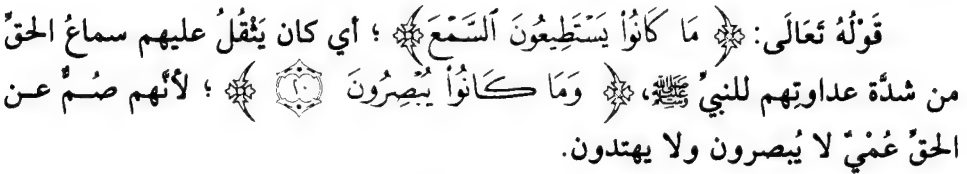 قَوْلُهُ تَعَالَى: ﴿ مَا كَانُواْ يَسْتَطِيعُونَ ٱلسَّمْعَ ﴾ ؛ أي كان يَثْقُلُ عليهم سماعُ الحقِّ
من شدَّة عداوتِهم للنبيِّ ﷺ، ﴿ وَمَا كَانُواْ يُبْصِرُونَ ٢٠ ﴾ ؛ لأنَّهم صُمٌّ عن
الحقِّ عُمْيٌ لا يُبصرون ولا يهتدون.